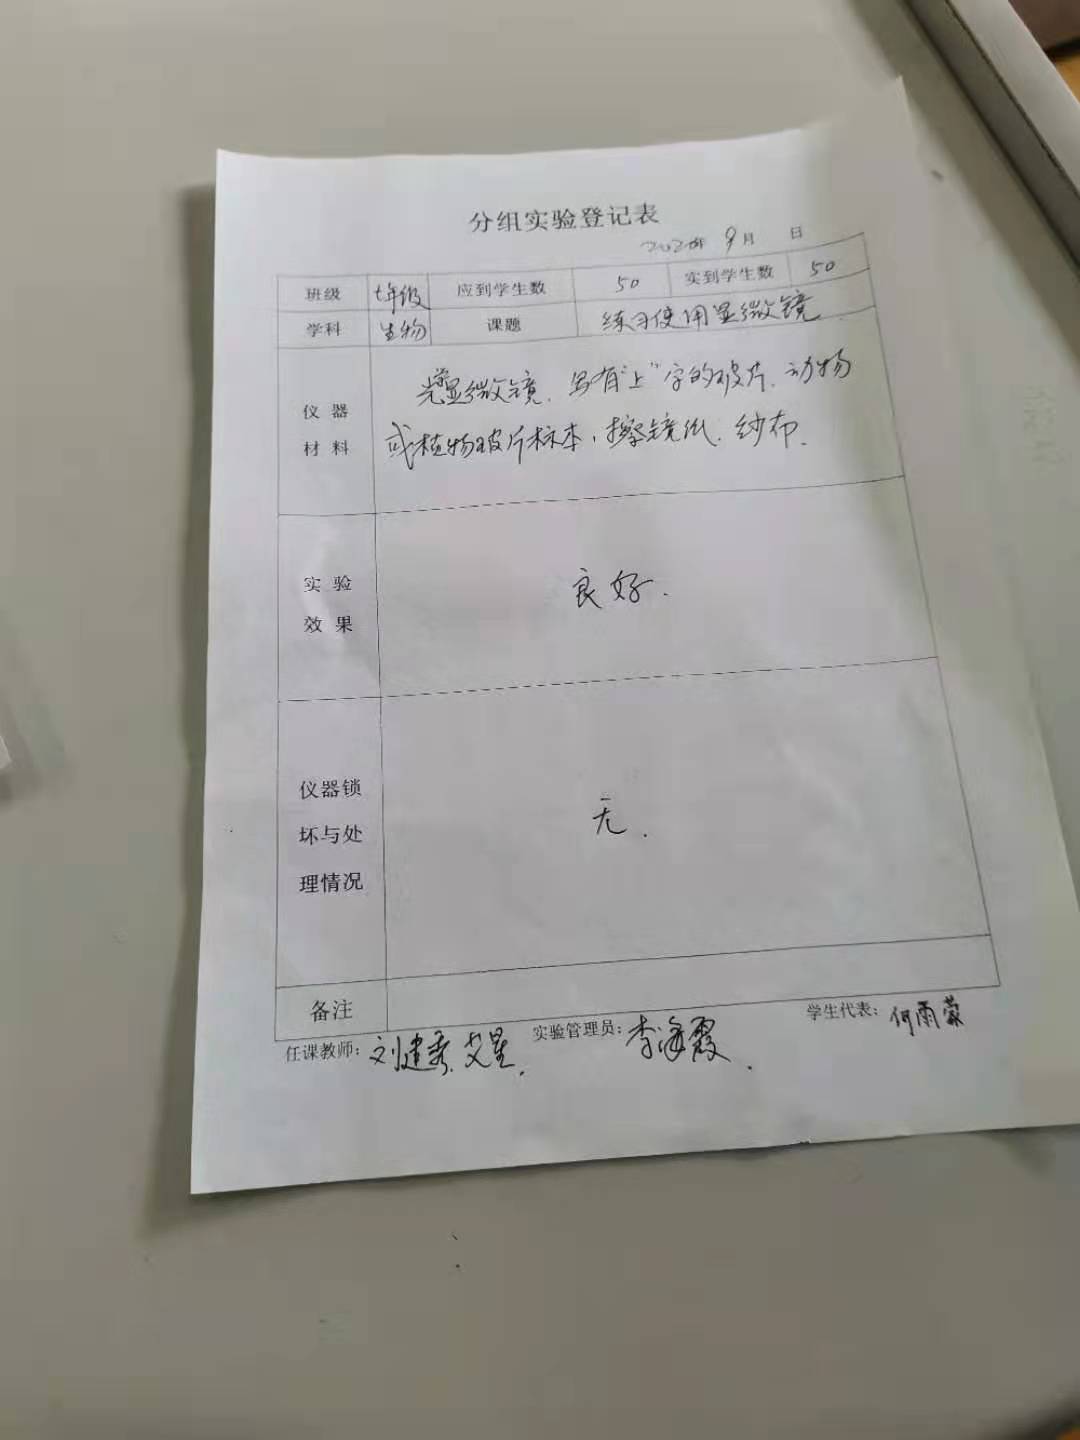 分组实验登记表
2020年 9月 日
班级 七年级 应到学生数 50 实到学生数 50
学科 生物 课题 练习使用显微镜
仪器 光学显微镜、写有"上"字的玻片、动物
材料 或植物玻片标本,擦镜纸、纱布.
实验 良好.
效果
仪器锁
坏与处 无.
理情况
备注
任课教师: 刘建秀 艾星. 实验管理员: 李海霞. 学生代表: 何雨蒙